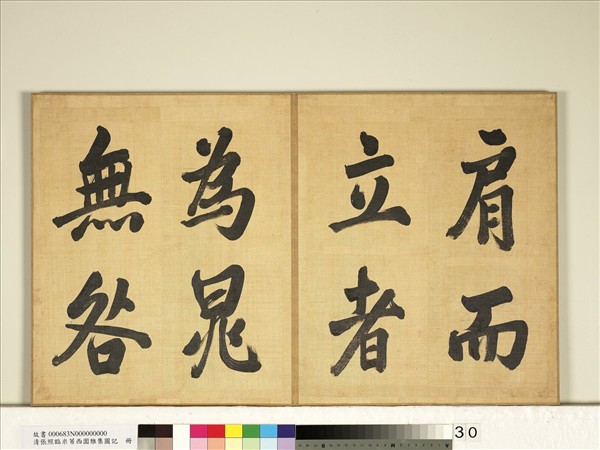 肩而
立者
為晁
無咎
故書 000683N000000000
清張照臨米芾西園雅集圖記 冊
30